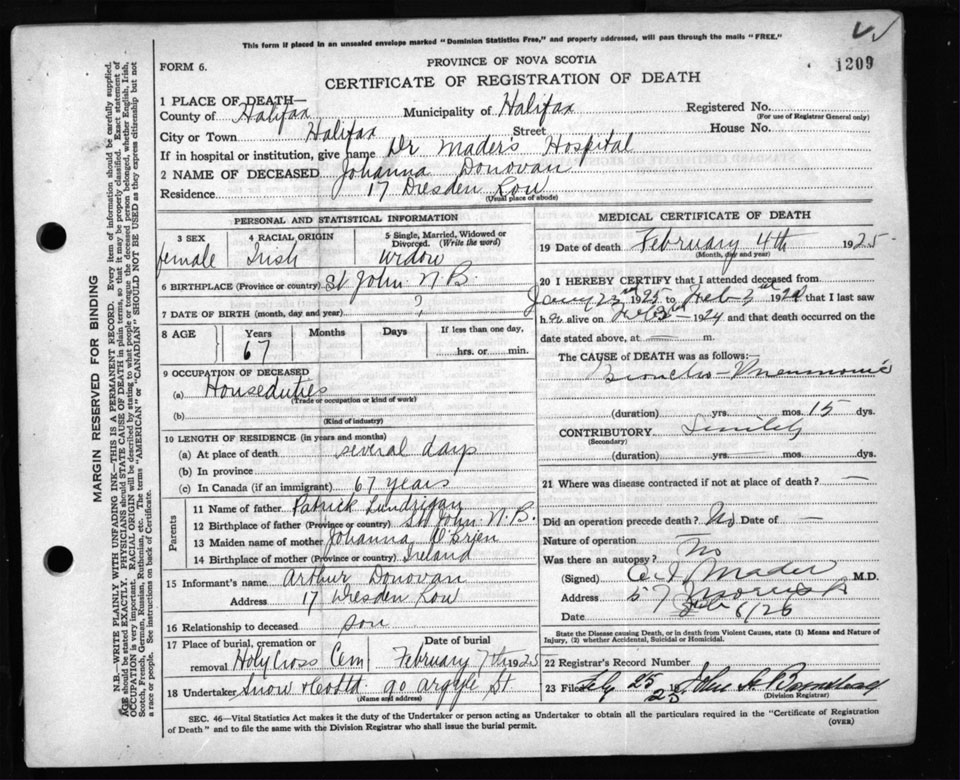 This form if placed in an unsealed envelope marked "Dominion Statistics Free," and properly addressed, will pass through the mails "FREE."
1209
FORM 6.
PROVINCE OF NOVA SCOTIA
CERTIFICATE OF REGISTRATION OF DEATH
1 PLACE OF DEATH—
County of Halifax Municipality of Halifax Registered No.
(For use of Registrar General only)
City or Town Halifax Street House No.
If in hospital or institution, give name Dr Mader's Hospital
2 NAME OF DECEASED Johanna Donovan
Residence 17 Dresden Row
(Usual place of abode)
PERSONAL AND STATISTICAL INFORMATION
3 SEX female
4 RACIAL ORIGIN Irish
5 Single, Married, Widowed or Divorced. (Write the word) Widow
6 BIRTHPLACE (Province or country) St John N.B.
7 DATE OF BIRTH (month, day and year) ?
8 AGE Years 67 Months Days If less than one day, hrs. or min.
9 OCCUPATION OF DECEASED
(a) Houseduties
(Trade or occupation or kind of work)
(b)
(Kind of industry)
10 LENGTH OF RESIDENCE (in years and months)
(a) At place of death several days
(b) In province
(c) In Canada (if an immigrant) 67 years
Parents
11 Name of father Patrick Lundrigan
12 Birthplace of father (Province or country) St John N.B.
13 Maiden name of mother Johanna O'Brien
14 Birthplace of mother (Province or country) Ireland
15 Informant's name Arthur Donovan
Address 17 Dresden Row
16 Relationship to deceased son
17 Place of burial, cremation or removal Holy Cross Cem
Date of burial February 7th 1925
18 Undertaker Snow & Co Ltd 90 Argyle St
(Name and address)
MEDICAL CERTIFICATE OF DEATH
19 Date of death February 4th 1925.
(Month, day and year)
20 I HEREBY CERTIFY that I attended deceased from
Jany 23rd 1925 to Feb 3rd 1924 that I last saw
her alive on Feb 3rd 1924 and that death occurred on the
date stated above, at — m.
The CAUSE of DEATH was as follows:
Broncho-Pneumonia
(duration) yrs. mos. 15 dys.
CONTRIBUTORY Senility
(Secondary)
(duration) yrs. — mos. dys.
21 Where was disease contracted if not at place of death? —
Did an operation precede death? No Date of —
Nature of operation
Was there an autopsy? No
(Signed) Mader M.D.
Address 57 Morris St
Date Feb 6/26
State the Disease causing Death, or in death from Violent Causes, state (1) Means and Nature of Injury, (2) whether Accidental, Suicidal or Homicidal.
22 Registrar's Record Number
23 Filed Feby 25 1925 John
(Division Registrar)
SEC. 46—Vital Statistics Act makes it the duty of the Undertaker or person acting as Undertaker to obtain all the particulars required in the "Certificate of Registration
of Death" and to file the same with the Division Registrar who shall issue the burial permit.
(OVER)
MARGIN RESERVED FOR BINDING
N.B.—WRITE PLAINLY WITH UNFADING INK—THIS IS A PERMANENT RECORD. Every item of information should be carefully supplied.
AGE should be stated EXACTLY. PHYSICIANS should STATE CAUSE OF DEATH in plain terms, so that it may be properly classified. Exact statement of
OCCUPATION is very important. RACIAL ORIGIN will be described by stating to what people or tongue the deceased person belonged, whether English, Irish,
Scotch, French, German, Russian, Ruthenian, etc. The terms "AMERICAN" or "CANADIAN" SHOULD NOT BE USED as they express citizenship but not
a race or people. See instructions on back of Certificate.